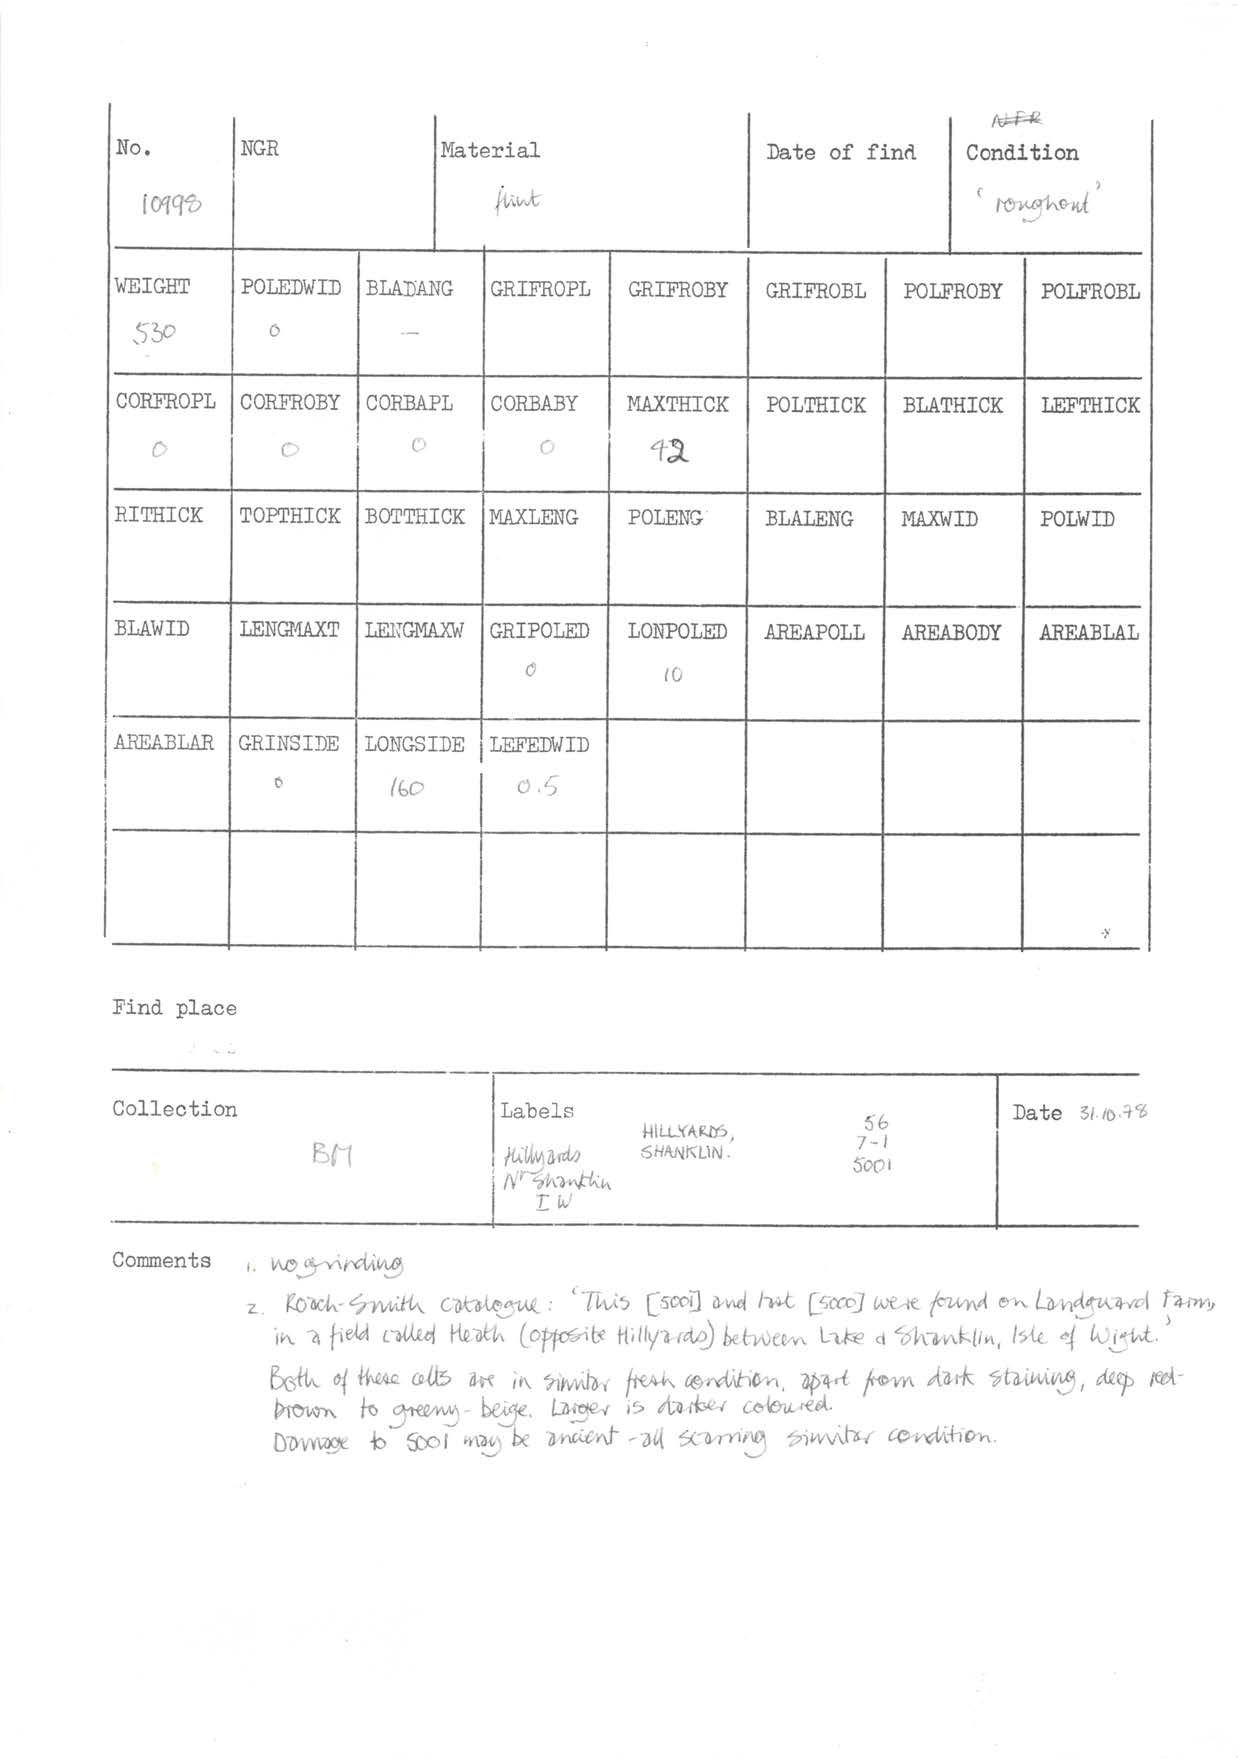 No. NGR Material Date of find Condition
10998 flint 'roughout'
WEIGHT POLEDWID BLADANG GRIFROPL GRIFROBY GRIFROBL POLFROBY POLFROBL
530 0 —
CORFROPL CORFROBY CORBAPL CORBABY MAXTHICK POLTHICK BLATHICK LEFTHICK
0 0 0 0 42
RITHICK TOPTHICK BOTTHICK MAXLENG POLENG BLALENG MAXWID POLWID
BLAWID LENGMAXT LENGMAXW GRIPOLED LONPOLED AREAPOLL AREABODY AREABLAL
0 10
AREABLAR GRINSIDE LONGSIDE LEFEDWID
0 160 0.5
Find place
Collection
BM
Labels
Hillyards
Nr Shanklin
I W
HILLYARDS,
SHANKLIN.
56
7-1
5001
Date 31.10.78
Comments 1. no grinding
2. Roach-Smith catalogue: 'This [5001] and last [5000] were found on Landguard Farm,
in a field called Heath (opposite Hillyards) between Lake & Shanklin, Isle of Wight.'
Both of these celts are in similar fresh condition, apart from dark staining, deep red-
brown to greeny-beige. Larger is darker coloured.
Damage to 5001 may be ancient - all scarring similar condition.